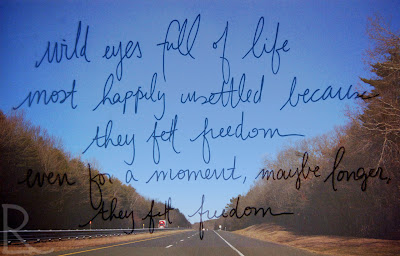 wild eyes full of life
most happily unsettled because
they felt freedom
even for a moment, maybe longer,
they felt freedom
R